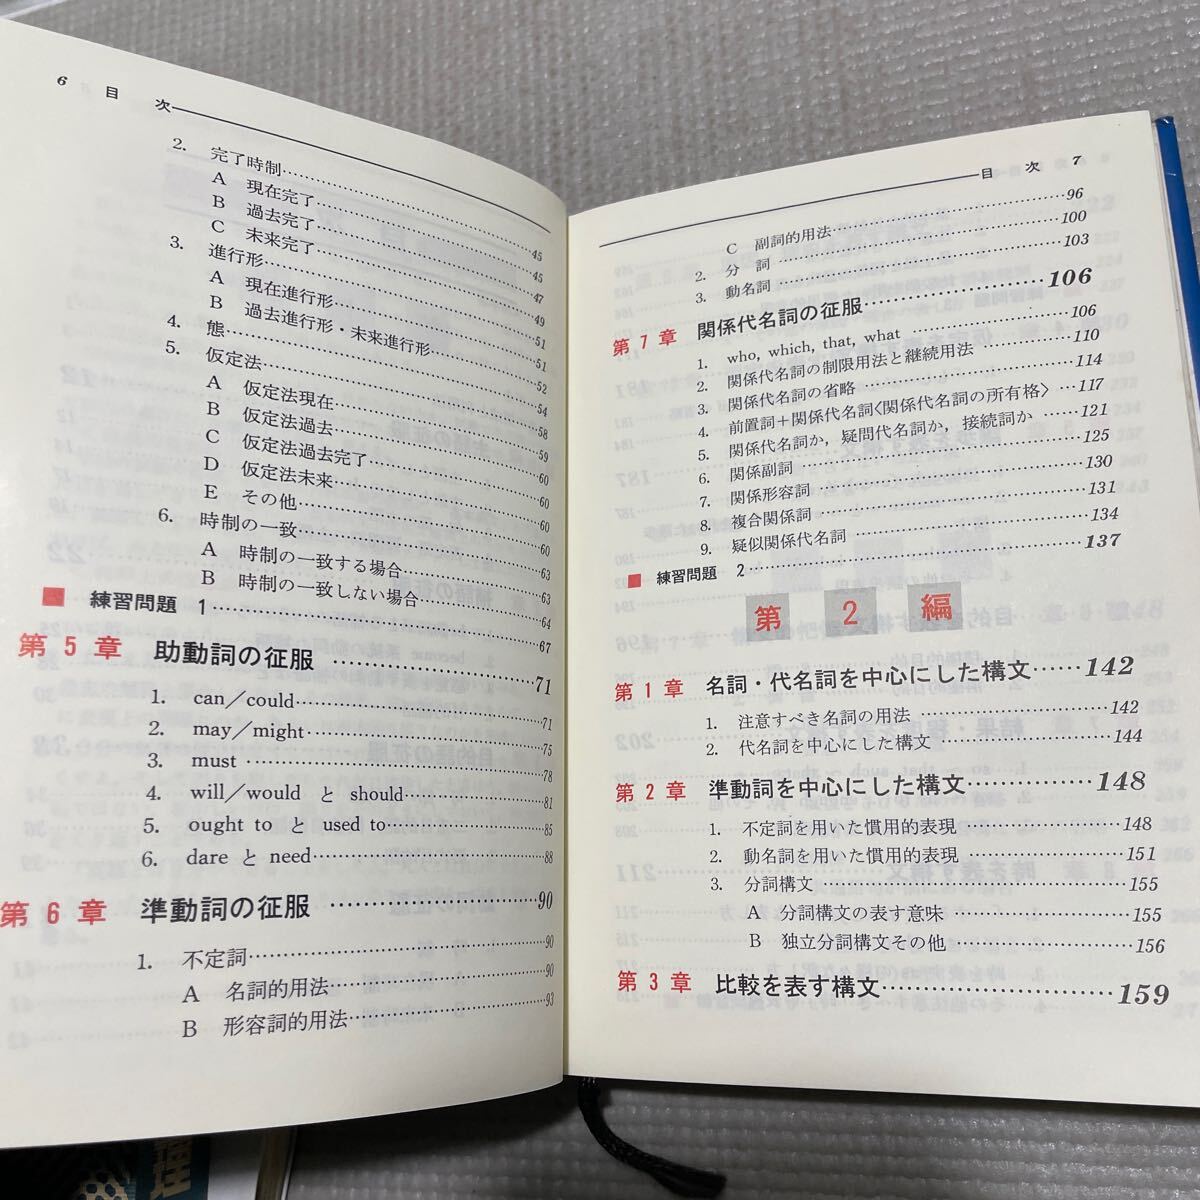 6 目 次
2. 完了時制……45
A 現在完了……45
B 過去完了……47
C 未来完了……49
3. 進行形……51
A 現在進行形……51
B 過去進行形・未来進行形……52
4. 態……54
5. 仮定法……58
A 仮定法現在……59
B 仮定法過去……60
C 仮定法過去完了……60
D 仮定法未来……60
E その他……60
6. 時制の一致……63
A 時制の一致する場合……63
B 時制の一致しない場合……64
■ 練習問題 1……67
第5章 助動詞の征服……71
1. can／could……71
2. may／might……75
3. must……78
4. will／would と should……81
5. ought to と used to……85
6. dare と need……88
第6章 準動詞の征服……90
1. 不定詞……90
A 名詞的用法……90
B 形容詞的用法……93
目 次 7
C 副詞的用法……96
2. 分 詞……100
3. 動名詞……103
第7章 関係代名詞の征服……106
1. who, which, that, what……106
2. 関係代名詞の制限用法と継続用法……110
3. 関係代名詞の省略……114
4. 前置詞＋関係代名詞〈関係代名詞の所有格〉…117
5. 関係代名詞か，疑問代名詞か，接続詞か……121
6. 関係副詞……125
7. 関係形容詞……130
8. 複合関係詞……131
9. 疑似関係代名詞……134
■ 練習問題 2……137
第 2 編
第1章 名詞・代名詞を中心にした構文……142
1. 注意すべき名詞の用法……142
2. 代名詞を中心にした構文……144
第2章 準動詞を中心にした構文……148
1. 不定詞を用いた慣用的表現……148
2. 動名詞を用いた慣用的表現……151
3. 分詞構文……155
A 分詞構文の表す意味……155
B 独立分詞構文その他……156
第3章 比較を表す構文……159